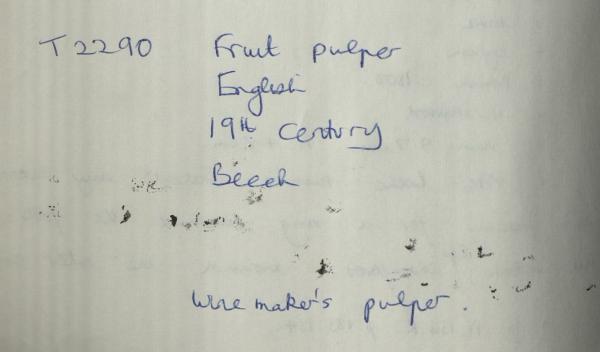 T2290 Fruit pulper
English
19th Century
Beech
Wine maker's pulper.